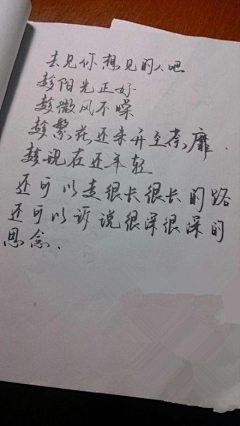 去见你想见的人吧
趁阳光正好
趁微风不噪
趁繁花还未开至荼靡
趁现在还年轻
还可以走很长很长的路
还可以诉说很深很深的
思念.